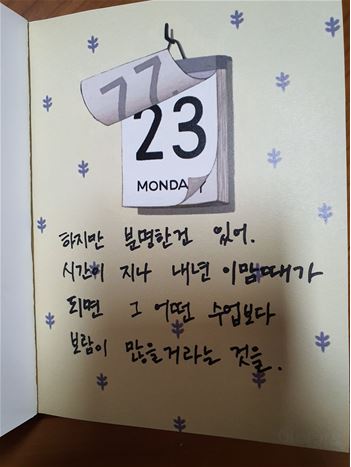 22
23
MONDAY
하지만 분명한건 있어.
시간이 지나 내년 이맘때가
되면 그 어떤 수업보다
보람이 많을거라는 것을.